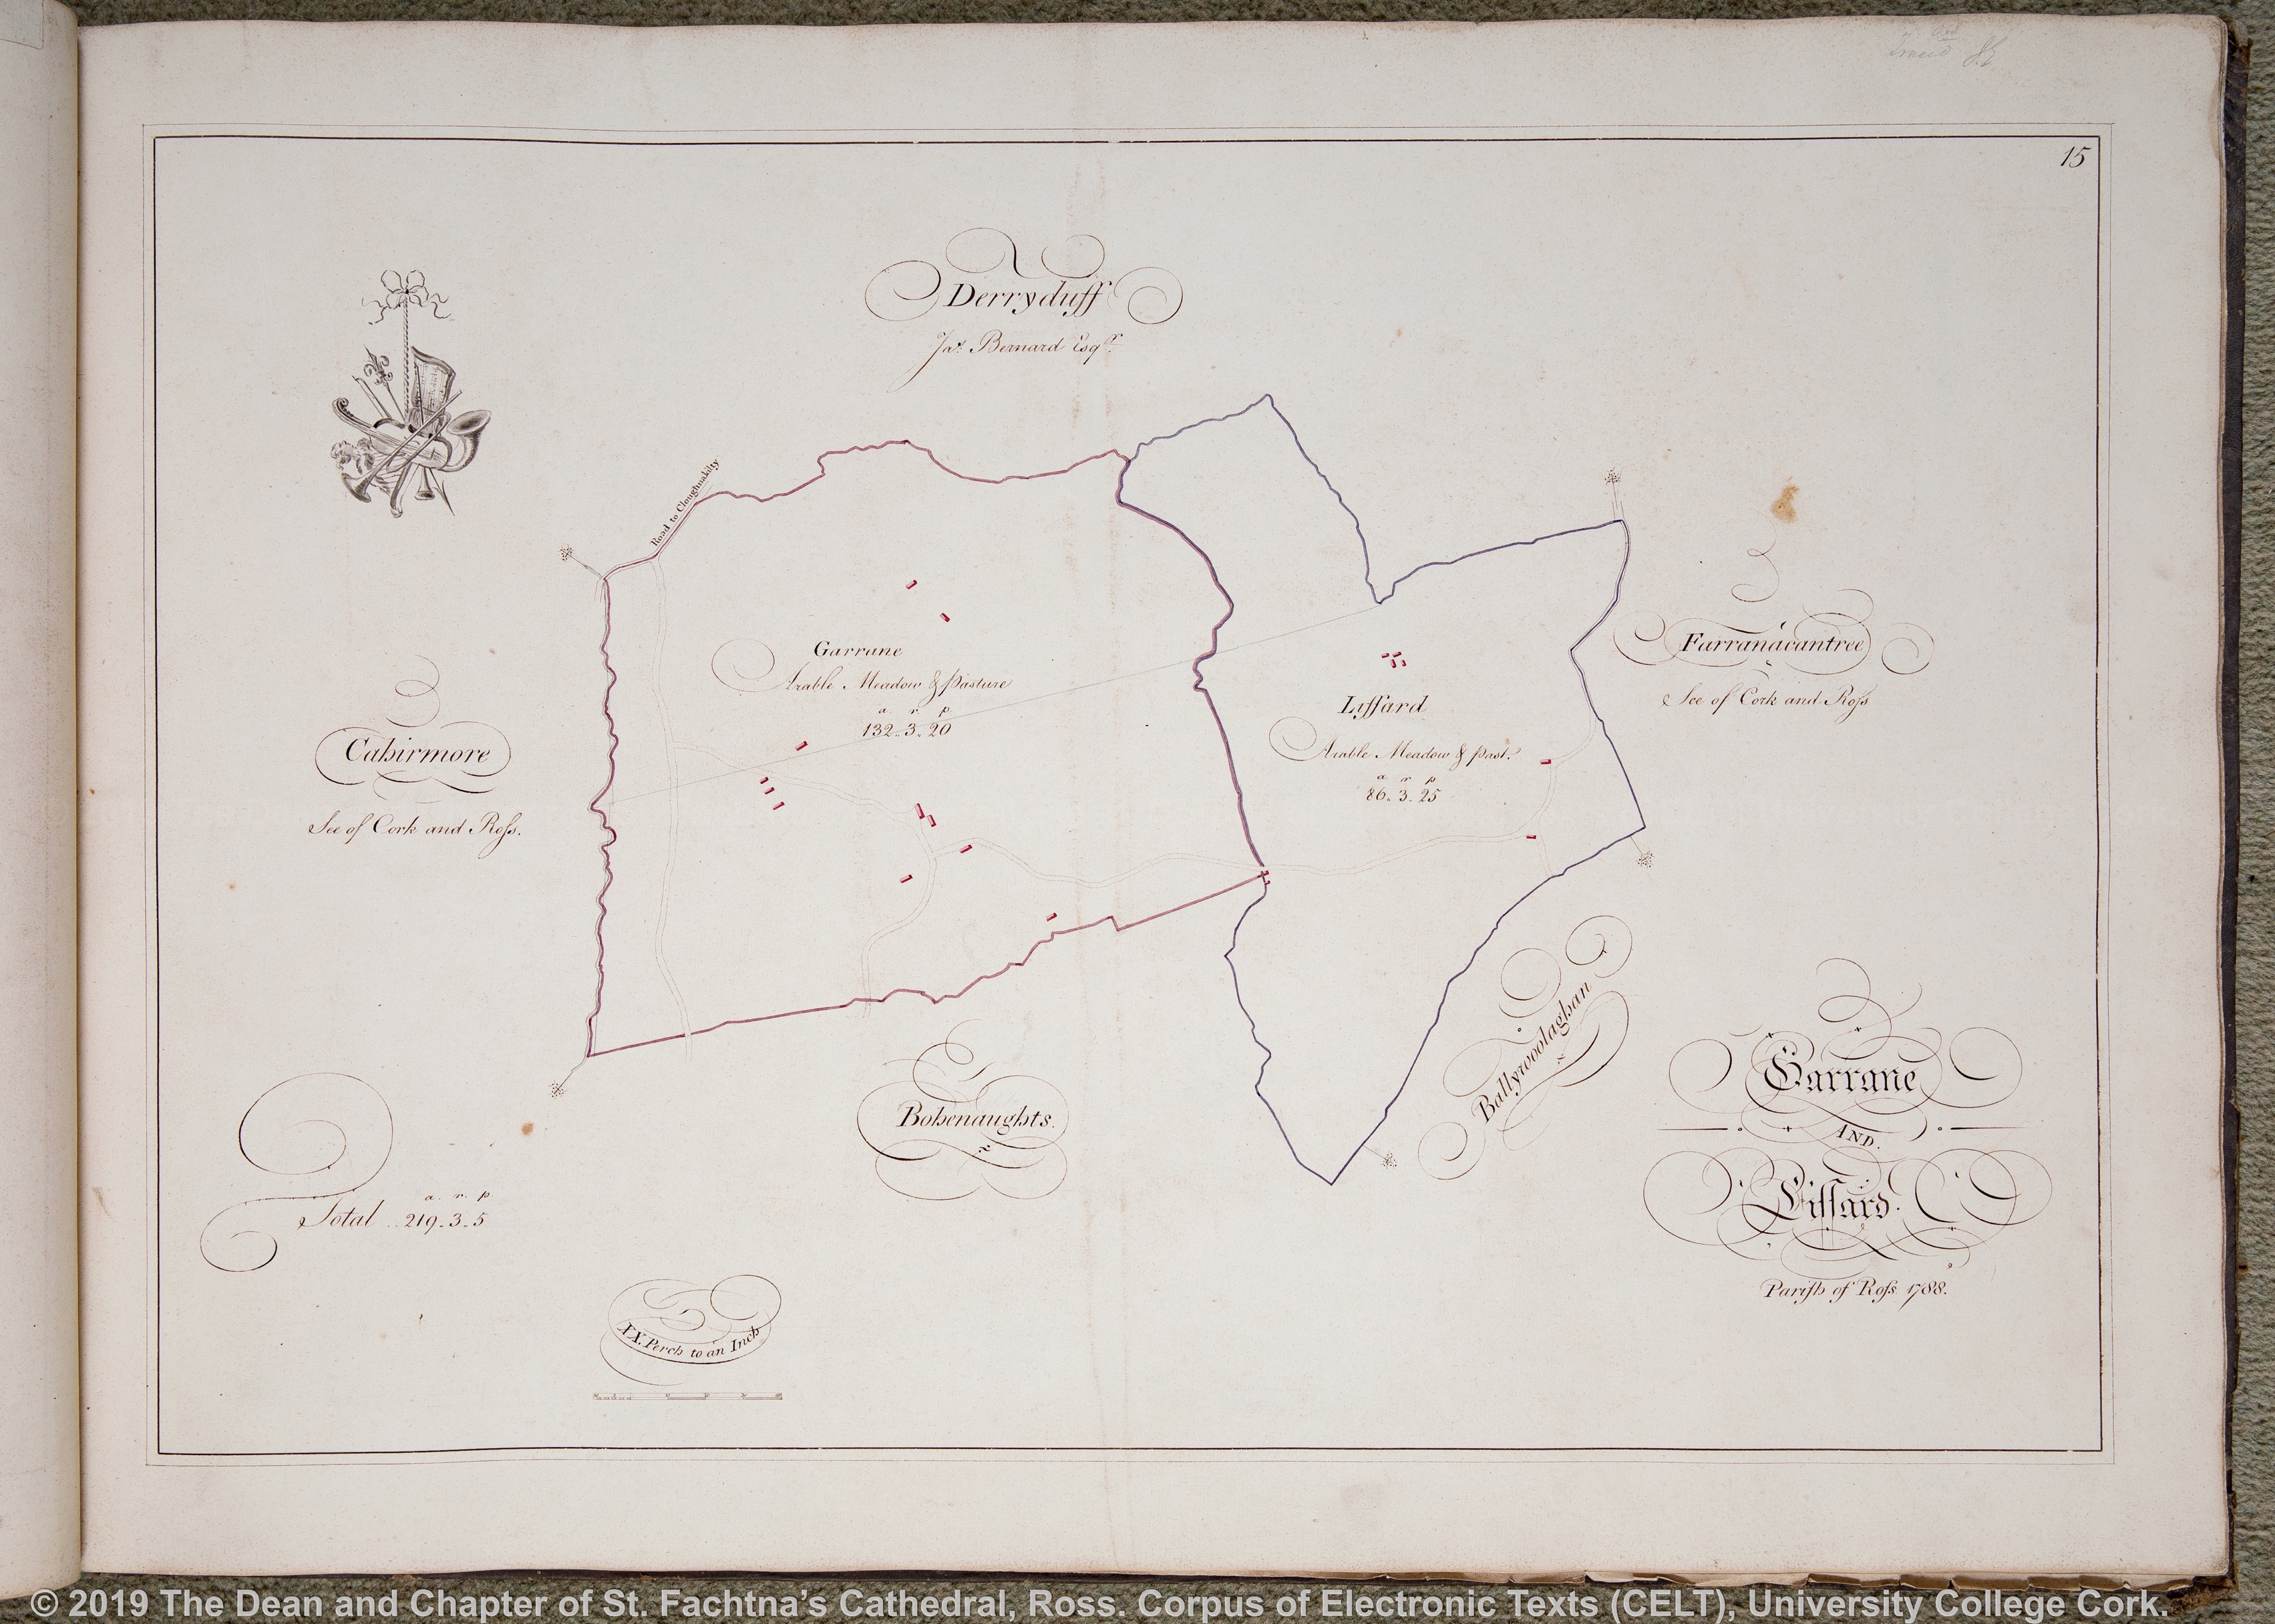 15
Derryduff
Jas. Bernard Esqr.
Road to Cloughnakilty
Garrane
Arable Meadow & Pasture
a r p
132.. 3.. 20
Lissard
Arable Meadow & Past.
a r p
86.. 3.. 25
Farranacantree
See of Cork and Ross
Cahirmore
See of Cork and Ross.
Bohenaughts.
Ballywoolaghan
Garrane
AND.
Lissard.
Parish of Ross. 1788.
Total
a. r. p
219.. 3.. 5
XX. Perch to an Inch
© 2019 The Dean and Chapter of St. Fachtna’s Cathedral, Ross. Corpus of Electronic Texts (CELT), University College Cork.